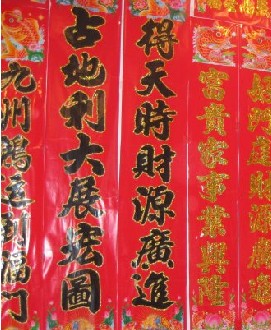 門財源廣
富貴家事業興隆
得天時財源廣進
占地利大展宏圖
九州鴻運到福門